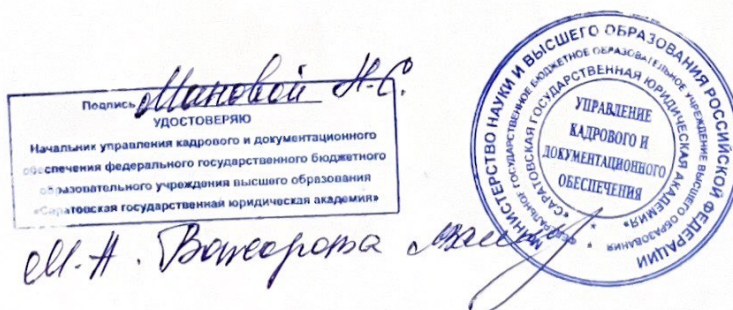 Подпись Мановой Н.С.
УДОСТОВЕРЯЮ
Начальник управления кадрового и документационного
обеспечения федерального государственного бюджетного
образовательного учреждения высшего образования
«Саратовская государственная юридическая академия»
М.А.
МИНИСТЕРСТВО НАУКИ И ВЫСШЕГО ОБРАЗОВАНИЯ РОССИЙСКОЙ ФЕДЕРАЦИИ
ФЕДЕРАЛЬНОЕ ГОСУДАРСТВЕННОЕ БЮДЖЕТНОЕ ОБРАЗОВАТЕЛЬНОЕ УЧРЕЖДЕНИЕ ВЫСШЕГО ОБРАЗОВАНИЯ
«САРАТОВСКАЯ ГОСУДАРСТВЕННАЯ ЮРИДИЧЕСКАЯ АКАДЕМИЯ»
УПРАВЛЕНИЕ
КАДРОВОГО И
ДОКУМЕНТАЦИОННОГО
ОБЕСПЕЧЕНИЯ